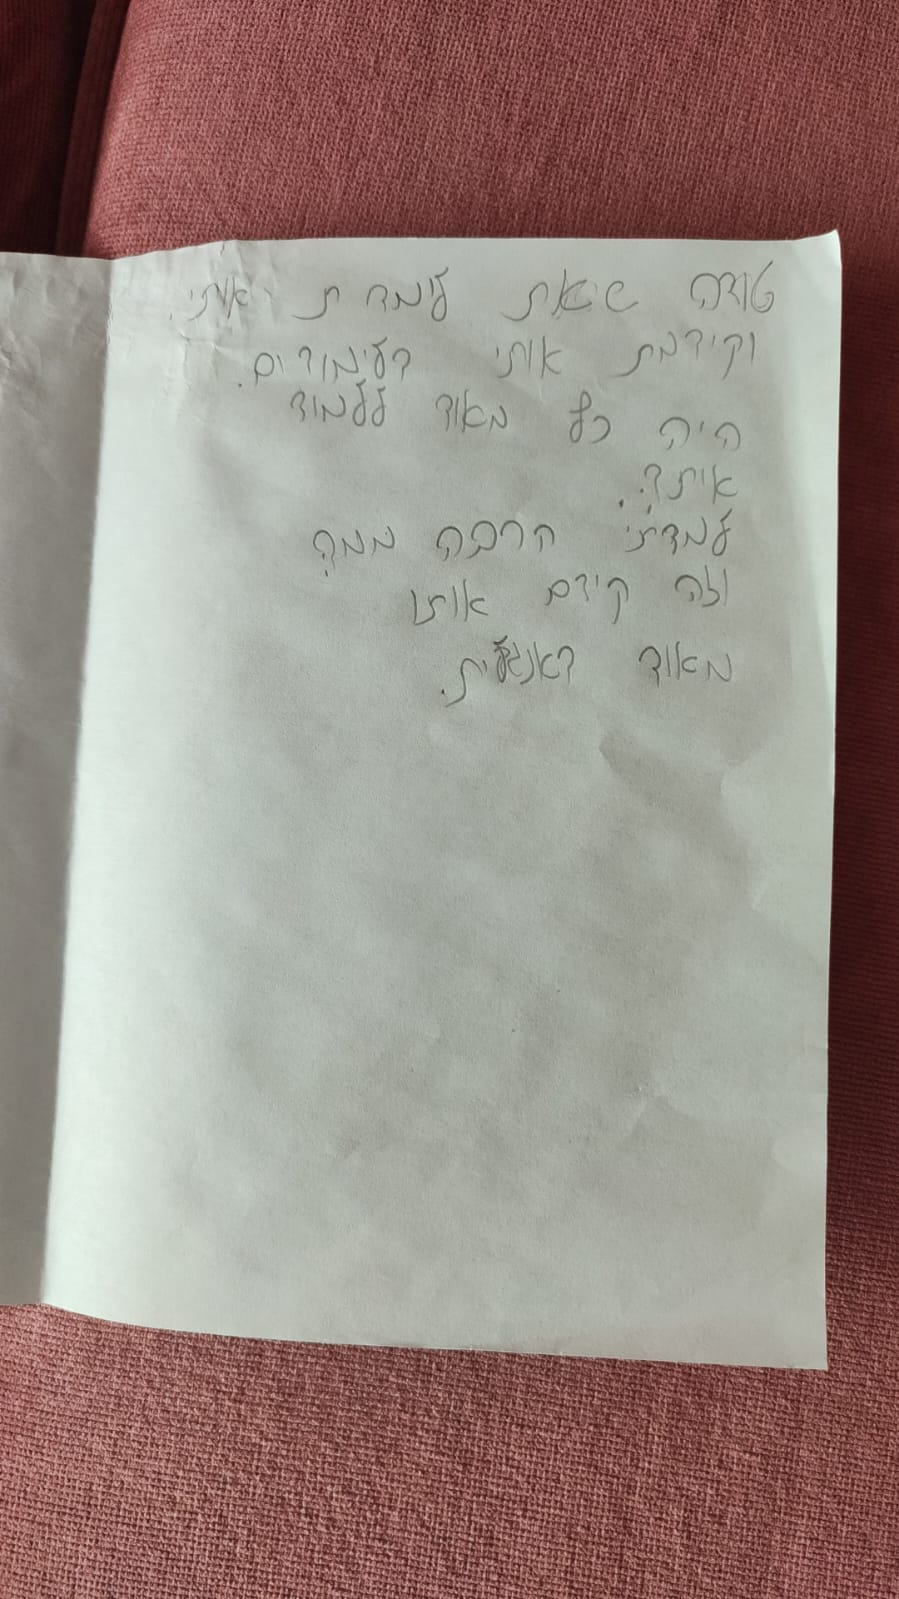 טודה שאת לימדת אותי.
וקידמת אותי בלימודים.
היה כל מאוד ללמוד
איתך.
למדתי הרבה ממך
וזה קידם אותו
מאוד באנגלית.